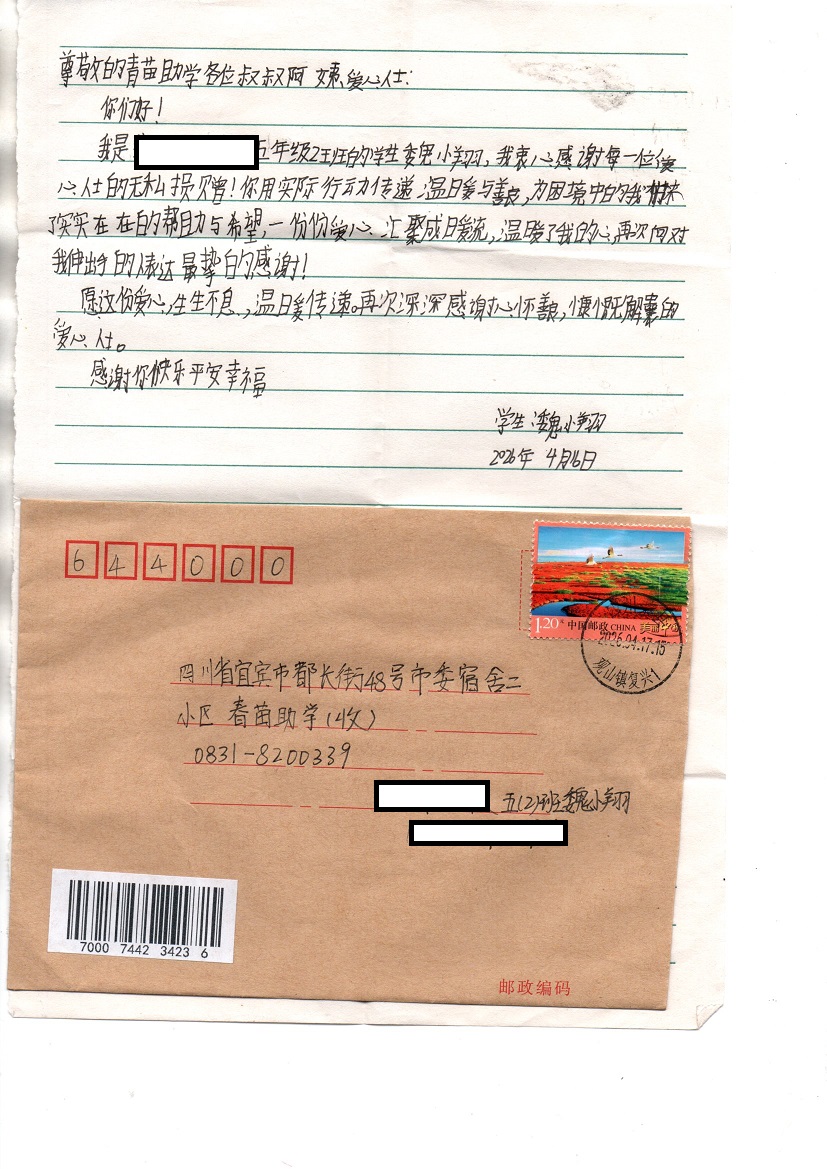 尊敬的青苗助学各位叔叔阿姨、爱心人士:
你们好!
我是 五年级2班的学生魏小翔,我衷心感谢每一位爱
心人士的无私捐赠!你用实际行动传递温暖与善良,为困境中的我带来
了实实在在的帮助与希望,一份份爱心汇聚成暖流,温暖了我的心,再次向对
我伸出手的人表达最挚的感谢!
愿这份爱心,生生不息,温暖传递。再次深深感谢心怀善良,慷慨解囊的
爱心人士。
感谢你快乐平安幸福
学生:魏小翔
2026年4月16日
6 4 4 0 0 0
1.20元 中国邮政 CHINA 美丽中国
2026.04.17.15
四川省宜宾市都长街48号市委宿舍二
小区 春苗助学(收)
0831-8200339
五(2)班魏小翔
7000 7442 3423 6
邮政编码